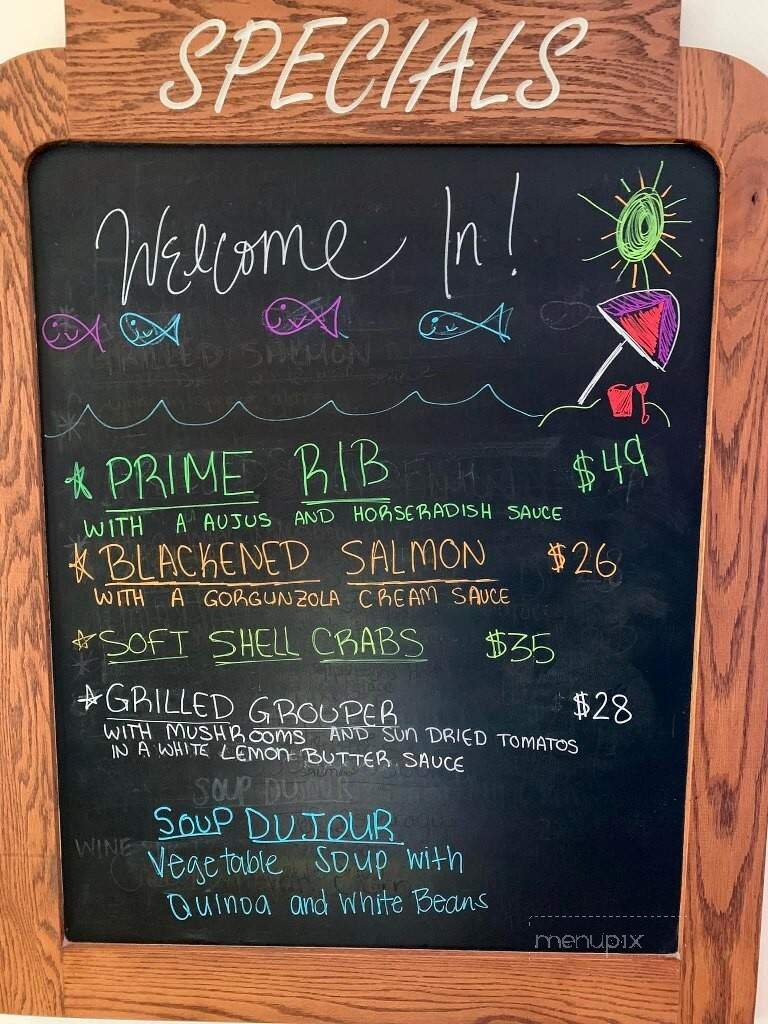 SPECIALS
Welcome In!
GRILLED SALMON
PRIME RIB $49
WITH A AUJUS AND HORSERADISH SAUCE
BLACKENED SALMON $26
WITH A GORGUNZOLA CREAM SAUCE
SOFT SHELL CRABS $35
GRILLED GROUPER $28
WITH MUSHROOMS AND SUN DRIED TOMATOS
IN A WHITE LEMON BUTTER SAUCE
SOUP DUJOUR
SOUP DUJOUR
WINE
Vegetable Soup with
Quinoa and White Beans
menupix